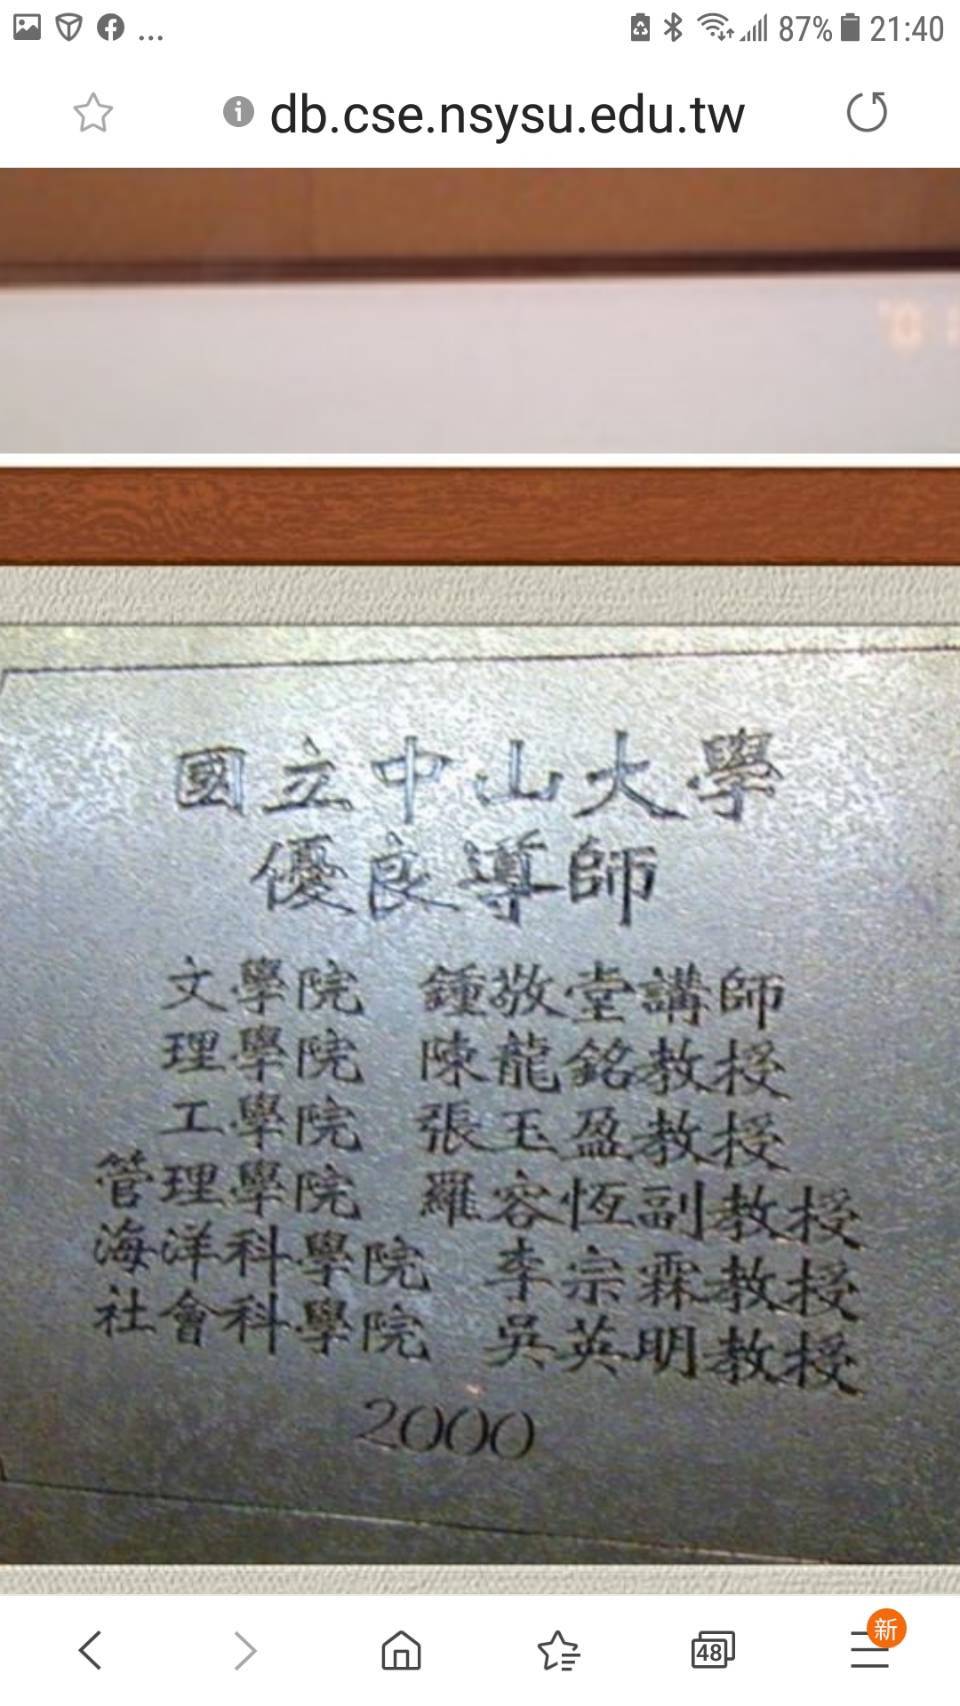 ... 87% 21:40
db.cse.nsysu.edu.tw
'01
國立中山大學
優良導師
文學院 鍾敬堂講師
理學院 陳龍銘教授
工學院 張玉盈教授
管理學院 羅容恆副教授
海洋科學院 李宗霖教授
社會科學院 吳英明教授
2000
48
新